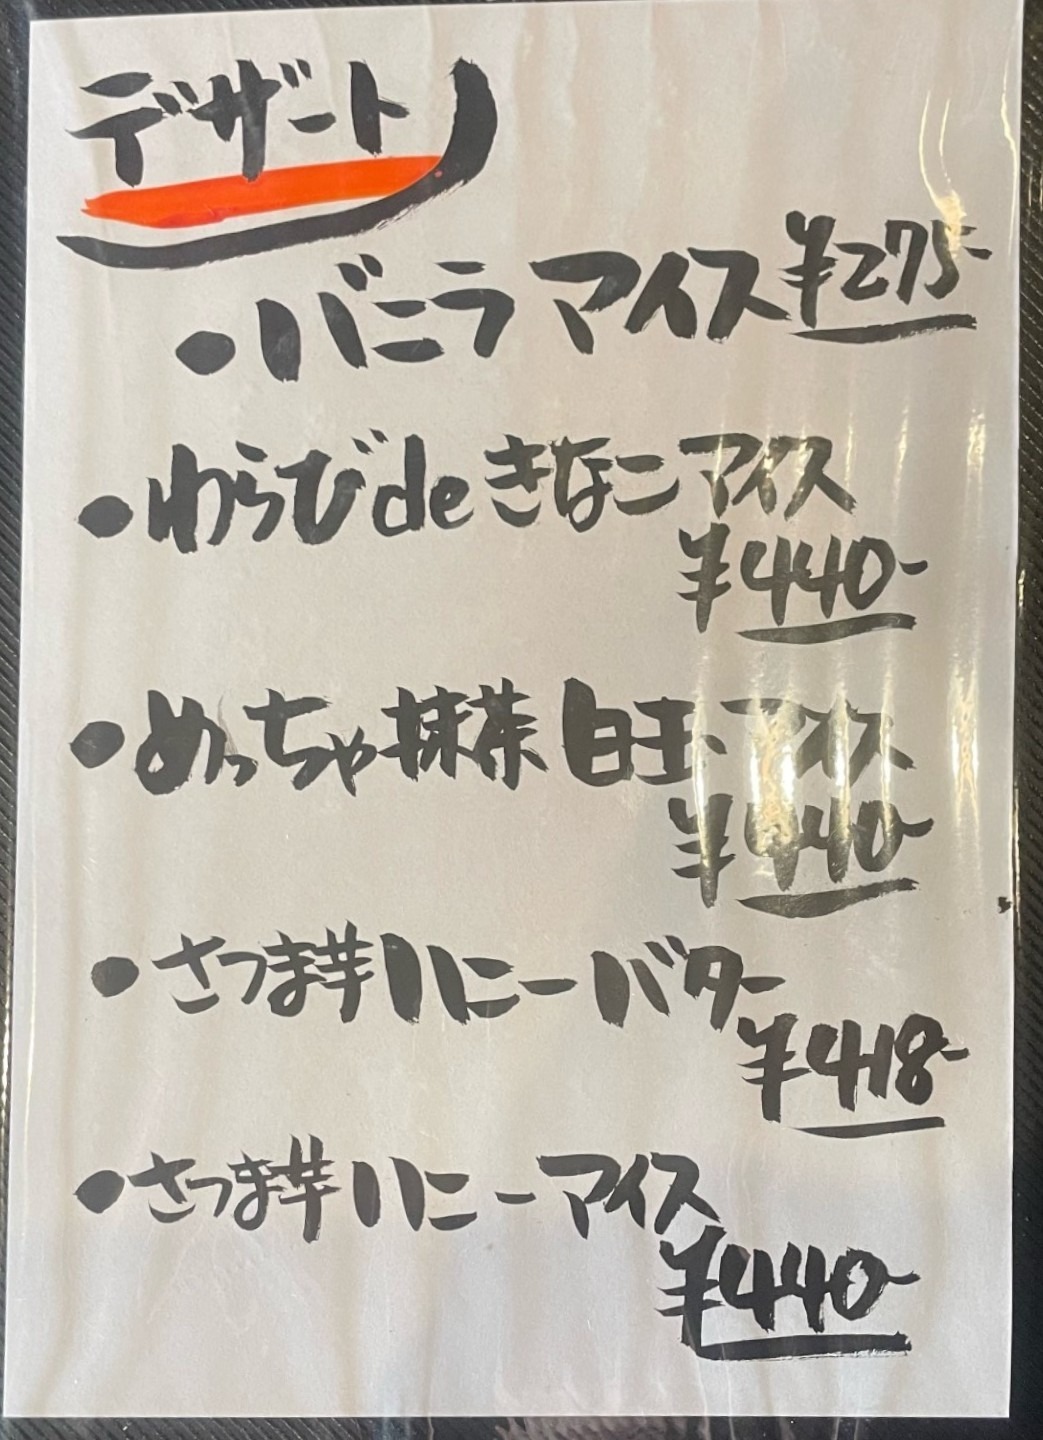 デザート
・バニラアイス ¥275-
・わらびdeきなこアイス
¥440-
・めっちゃ抹茶白玉アイス
¥440-
・さつま芋ハニーバター
¥418-
・さつま芋ハニーアイス
¥440-